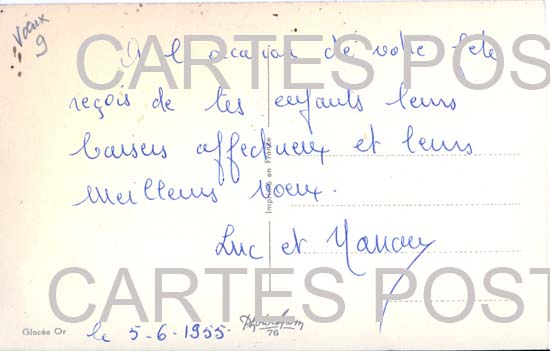 Voeux
9
A l'occasion de votre fête
CARTES POST
reçois de tes enfants leurs
baisers affectueux et leurs
meilleurs voeux.
Imprimé en France
Luc et
CARTES POST
Glacée Or
le 5-6-1955
76